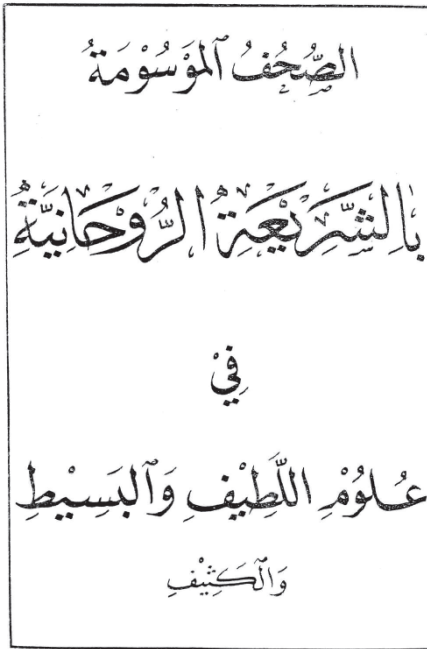 الصُّحُفُ ٱلمَوْسُوْمَةُ
بِالشَّرِيْعَةِ الرُّوْحَانِيَّةِ
فِيْ
عُلُوْمِ اللَّطِيْفِ وَٱلبَسِيْطِ
وَٱلكَثِيْفِ